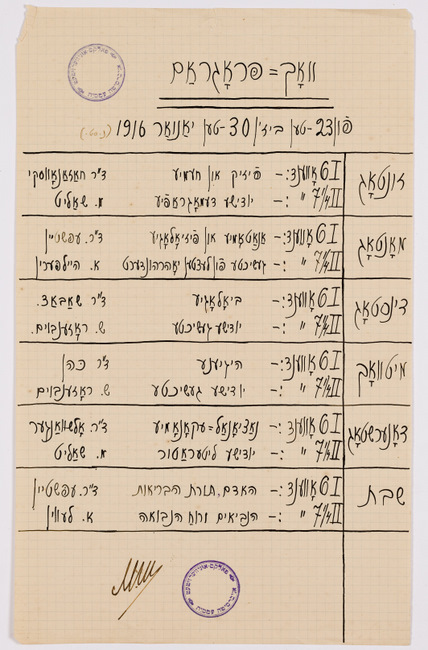 וואָך=פּראָגראַם
פֿון 23-טען ביז'ן 30-טען יאַנואַר 1916 (נ.סט.)
זונטאָג
I 6 אָווענד:– פֿיזיק און חעמיע ד"ר חאזאנאָווסקי
II 7¼ " :– יודישע דעמאָגראַפֿיע מ. שאַליט
מאָנטאָג
I 6 אָווענד:– אנאַטאָמיע און פֿיזיאָלאָגיע ד"ר. עפּשטיין
II 7¼ " :– געשיכטע פון לעצטען יאָהרהונדערט א. היילפּערין
דינסטאָג
I 6 אָווענד:– ביאָלאָגיע ד"ר שאַבאַד.
II 7¼ " :– יודישע געשיכטע ש. ראָזענבוים.
מיטוואָך
I 6 אָווענד:– היגיענע ד"ר כהן
II 7¼ " :– יודישע געשיכטע ש. ראָזענבוים
דאָנערשטאָג
I 6 אָווענד:– נאַציאָנאַל=עקאָנאָמיע ד"ר.
II 7¼ " :– יודישע ליטעראַטור מ. שאַליט
שבת
I 6 אָווענד:– האדם, תורת הבריאות ד"ר. עפּשטיין
II 7¼ " :– הנביאים ורוח הנבואה א. לעווין